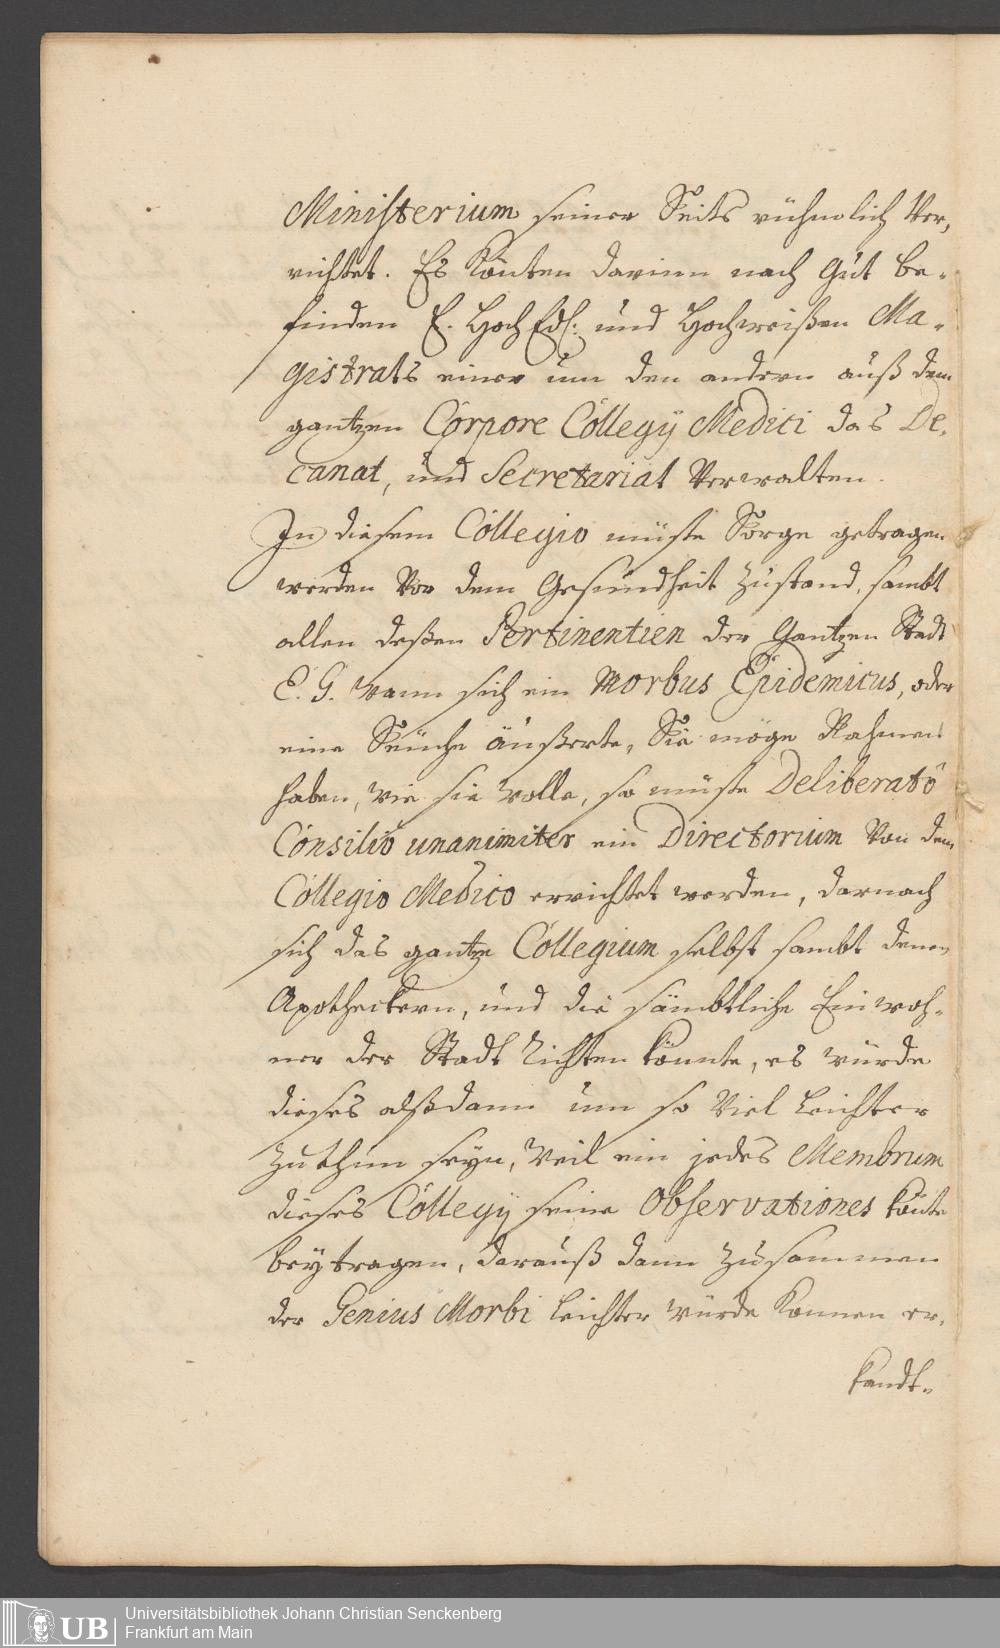 Ministerium seiner Seits rühmlich ver-
richtet. Es könten darinn nach Gut be-
finden E. HochEdl: und Hochweißen Ma-
gistrats einer um den andern auß dem
gantzen Corpore Collegij Medici das De-
canat, und Secretariat verwalten.
In diesem Collegio müste Sorge getragen
werden vor dem Gesundheit zustand, sambt
allen deßen Pertinentien der Gantzen Stadt
E. G. wann sich ein Morbus Epidemicus, oder
eine Seuche äußerte, Sie möge Nahmen
haben, wie sie wolle, so müste Deliberatô
Consiliô unanimiter ein Directorium von dem
Collegio Medico errichtet werden, darnach
sich das gantze Collegium selbst sambt denen
Apotheckern, und die sämbtliche Einwoh-
ner der Stadt richten könnte, es würde
dieses alßdann um so viel leichter
zu thun seyn, weil ein jedes Membrum
dieses Collegij seine Observationes könte
beytragen, darauß dann zusammen
der Genius Morbi leichter würde können er-
kandt-
UB
Universitätsbibliothek Johann Christian Senckenberg
Frankfurt am Main